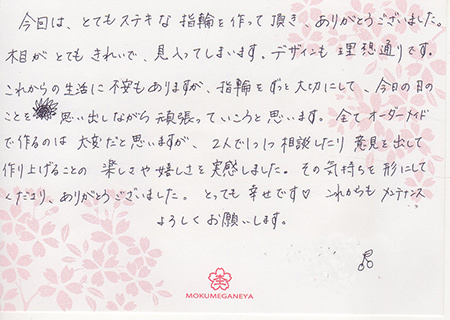 今回は、とてもステキな指輪を作って頂き、ありがとうございました。
木目がとてもきれいで、見入ってしまいます。デザインも理想通りです。
これからの生活に不安もありますが、指輪をずっと大切にして、今日の日の
ことを思い出しながら頑張っていこうと思います。全てオーダーメイド
で作るのは大変だと思いますが、2人で1つ1つ相談したり意見を出して
作り上げることの楽しさや嬉しさを実感しました。その気持ちを形にして
くださり、ありがとうございました。とっても幸せです♡ これからもメンテナンス
よろしくお願いします。
MOKUMEGANEYA